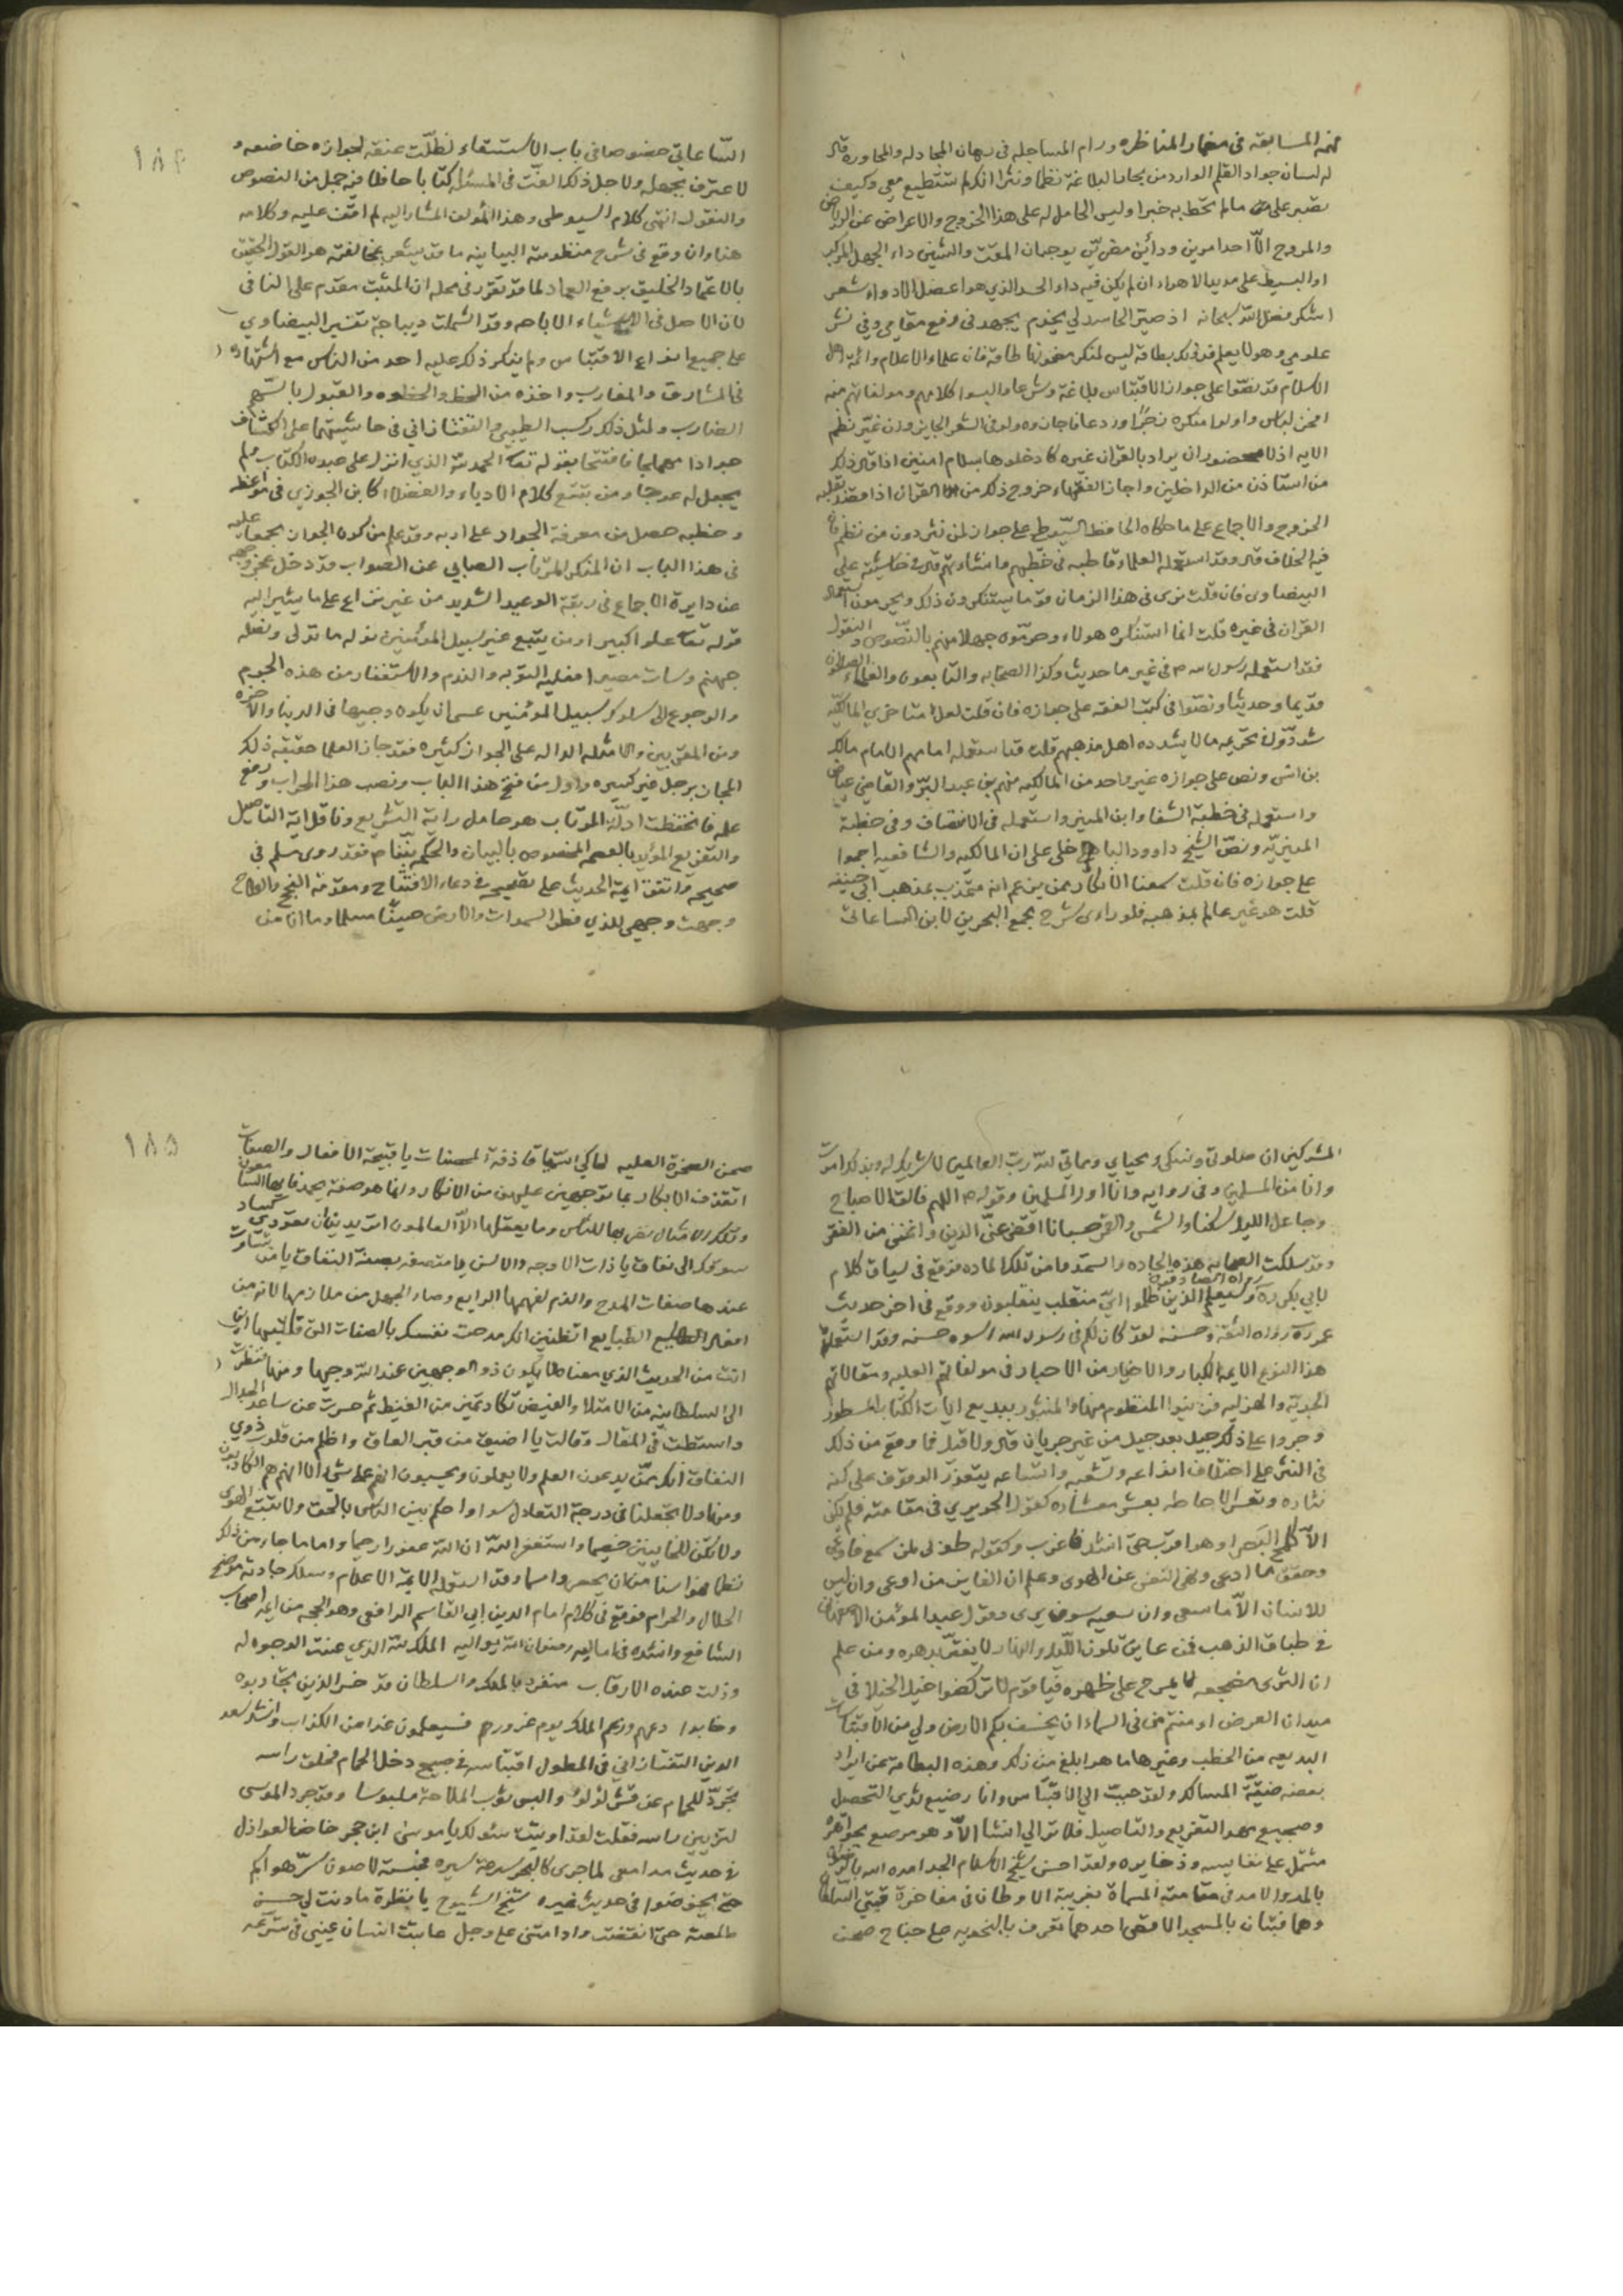 منه المسابقة في مضمار المناظره ورام المساجله في رهان المجادله والمحاوره قال
له لسان جواد القلم الوارد من بحار البلاغة نظما ونثرا انك لن تستطيع معي وكيف
تصبر على ما لم تحط به خبرا وليس الحامل له على هذا الخروج والاعراض عن الرياض
والمروج الّا احد امرين ودائين مضرّين يوجبان المقت والشين داء الجهل المركب
او البسيط على مويد الاهواء ان لم يكن فيه داء الحسد الذي هو اعضل الادواء شعر
اشكر فضل الله سبحانه اذ صيّر الحاسد لي يخدم يجهد في رفع مقامي وفي نشر
علومي وهو لا يعلم فان علماء الاعلام وائمة اهل
الاسلام قد نصّوا على جواز الاقتباس بلاغة وشرعا والبسوا كلامهم ومولفاتهم منه
افخر لباس واولوا منكره زجرا وردعا
الايه اذ لا محضور ان يراد بالقران غيره كادخلوها بسلام امنين اذا قال ذلك
من استاذن من الداخلين واجاز الفقهاء خروج ذلك من القران اذا قصد بقلبه
الخروج والاجماع على ما حكاه الحافظ السّيوطي على جواز لمن نثر دون من نظم فان
فيه الخلاف قال وقد استعمله العلماء قاطبه في خطبهم وانشاءتهم قال في حاشيته على
البيضاوى فان قلت نرى في هذا الزمان قوما يستنكرون ذلك ويحرمون استعمال
القران في غيره قلت انما استنكره هولاء وحرّموه جهلا منهم بالنّصوص والنقول
فقد استعمله رسول الله ص في غير ما حديث وكذا الصحابه والتابعون والعلماء
قديما وحديثا ونصّوا في كتب الفقه على جوازه فان قلت لعل متاخري المالكيّه
شددّوا في تحريمه ما لا يشدده اهل مذهبهم قلت قد استعمله امامهم الامام مالك
بن انس ونص على جوازه غير واحد من المالكيه منهم بن عبد البرّ والقاضي عياض
واستعمله في خطبة الشفا وابن المنير واستعمله في الانتصاف وفي خطبة
ونصّ الشيخ داوود الباخلي على ان المالكيه والشافعيه اجمعوا
على جوازه فان قلت سمعنا الانكار ممن يزعم انه متمذهب بمذهب ابي حنيفه
قلت هو غير عالم بمذهبه فلو راءى شرح مجمع البحرين لابن الساعاتي
١٨٤
السّاعاتي خصوصا في باب الاستسقاء لظلّت عنقه لجوازه خاضعه و
لاعترف بجهله ولاجل ذلك الّفت في المسئله كتابا حافلا فيه جمل من النصوص
والنقول انتهى كلام السيوطي وهذا المؤلف المشار اليه لم اقف عليه وكلامه
هنا وان وقع في شرح منظومته البيانيه ما قد يشعر بمخالفته هو القول الحقيق
بالاعتماد الخليق برفع العماد لما قد تقرر في محله ان المثبت مقدم على النافي
لان الاصل في الاشياء الاباحه وقد اشتملت ديباجة تفسير البيضاوي
على جميع انواع الاقتباس ولم ينكر ذلك عليه احد من الناس مع اشتهاره
في المشارق والمغارب واخذه من الحظ والحظوه والقبول بالسّهم
الضارب ولمثل ذلك ركب الطيبي والتفتازاني في حاشيتهما على الكشّاف
جوادا هملاجا فافتتحا بقوله تعا الحمد لله الذي انزل على عبده الكتاب ولم
يجعل له عوجا ومن تتبع كلام الادباء والفضلاء كابن الجوزي في مواعظه
وخطبه حصل من معرفة الجواد على اربه وقد علم من كون الجواز مجمعا عليه
في هذا الباب ان المنكر المرتاب الصابي عن الصواب قد دخل بخروجه
عن دايرة الاجماع في ربقة الوعيد الشديد من غير نزاع على ما يشير اليه
قوله تعا علوا كبيرا ومن يتبع غير سبيل المؤمنين نوله ما تولى ونصله
جهنم وساءت مصيرا فعليه التوبه والندم والاستغفار من هذه الجرم
والرجوع الى سلوك سبيل المؤمنين عسى ان يكون وجيها في الدنيا والآخره
ومن المقربين والامثله الداله على الجواز كثيره فقد جاز العلما حقيقة ذلك
المجاز برجل غير كسيره واول من فتح هذا الباب ونصب هذا المحراب ورفع
علمه فانخفظت ادلّة المرتاب هو حامل راية التشريع وناقل اية التاصيل
والتفريع المؤيد بالعصمه المخصوص بالبيان والحكمه نبيّنا ص فقد روى مسلم في
صحيحه واتفق ايمة الحديث على تصحيحه في دعاء الافتتاح ومقدمة النجح والفلاح
وجهت وجهي للذي فطر السموات والارض حنيفا مسلما وما انا من
المشركين ان صلوتي ونسكي ومحياي ومماتي لله رب العالمين لا شريك له وبذلك امرت
وانا من المسلمين وفي روايه وانا اول المسلمين وقوله ص اللهم فالق الاصباح
وجاعل الليل سكنا والشمس والقمر حسبانا اقض عنّي الدين واغنني من الفقر
وقد سلكت الصحابه هذه الجاده واستمدوا من تلك الماده فوقع في سياق كلام
لابي بكر رض وسيعلم الذين ظلموا ايّ منقلب ينقلبون ووقع في اخر حديث
عمر رواه الثقة وحسنه لقد كان لكم في رسول الله اسوه حسنه وقد استعمل
هذا النوع الايمه الكبار والاخيار من الاحبار في مولفاتهم العليه ومقالاتهم
الجديّه والهزليه فزينوا المنظوم منها والمنثور ببديع ايات الكتاب المسطور
وجروا على ذلك جيل بعد جيل من غير جريان قال ولا قيل فما وقع من ذلك
في النثر على اختلاف انواعه وتشعبه واتساعه يتعذر الوقوف على كنه
نثاره وتعسر الاحاطه بعشر معشاره كقول الحريري في مقامته فلم يكن
الّا كلمح البصر او هو اقرب حتى انشد فاغرب وكقوله طوبى لمن سمع فاوعى
وحقق ما ادعى ونهى النفس عن الهوى وعلم ان الفايز من ارعوى وان ليس
للانسان الّا ما سعى وان سعيه سوف يرى وقول عبد المؤمن الاصفهاني
في طباق الذهب فمن عاين تلون الليل والنهار لا يغترّ بدهره ومن علم
ان الثرى مضجعه لا يمرح على ظهره فيا قوم لا تركضوا خيل الخيلا في
ميدان العرض اءمنتم من في السماء ان يخسف بكم الارض ولي من الاقتباسات
البديعه من الخطب وغيرها ما هو ابلغ من ذلك وهذه البطاقة عن ايراد
بعضه ضيّقة المسالك ولقد حببت الي الاقتباس وانا رضيع لثدي التحصيل
وضجيع مهد التفريع والتاصيل فلا ترا لي انشا الّا وهو مرصع بجواهره
مشتمل على نفايسه وذخايره ولقد احسن شيخ الاسلام الجد امده الله
بالمدد الامد في مقامته المسماة بغريبة الاوطان في مفاخرة قبتي السلطان
وهما قبتان بالمسجد الاقصى احداهما تعرف بالنحويه على جناح صحن
١٨٥
صحن الصخرة العليه
اتقذف الابكار بما
وتلك الامثال نضربها للناس وما يعقلها الّا العالمون اتريدين ان تعودي
سوقك الى نفاق يا ذات الاوجه والالسن يا متصفه بصفة النفاق يا من
عندها صفات المدح والذم لفهمها الرايع وصار الجهل من ملازمها لانه من
افعال الطبايع اتظنين انك مدحت نفسك بالصفات التي
انت من الحديث الذي معناه لا يكون ذو الوجهين عند الله وجيها ومنها فنظرت
الى السلطانيه من الامتلا والغيض تكاد تميز من الغيظ ثم حسرت عن ساعد الجدال
واستطت في المقال وقالت يا اضيق من قبر العاق واظلم من قلوب ذوي
النفاق انك ممن يدعون العلم ولا يعملون ويحسبون انهم على شيء الا انهم هم الكاذبون
ومنها ولا تجعلنا في درجة التعادل سوا واحكم بين الناس بالحق ولا تتبع الهوى
ولا تكن للخاينين خصيما واستغفر الله ان الله غفورا رحيما واما ما جاء من ذلك
نظما وقد استعمله الايمة الاعلام وسلك جادته موضح
الحلال والحرام فوقع في كلام امام الدين ابي القاسم الرافعي وهو الحجه من ايمه اصحاب
الشافعي وانشده في اماليه رضوان الله يواليه الملك لله الذي عنت الوجوه له
وذلت عنده الارقاب متفرد بالملك والسلطان قد خسر الذين يحاربوه
وخابوا دعهم وزعم الملك يوم غرورهم فسيعلمون غدا من الكذاب وانشد سعد
الدين التفتازاني في المطول اقتباسه في صبيح دخل الحمام فحلق راسه
تجرّد للحمام عن قشر لؤلؤ والبس ثوب الملاحة ملبوسا وقد جرد الموسى
لتزيين راسه فقلت لقد اوتيت سؤلك يا موسى ابن حجر خاض العواذل
في حديث مدامعي لما جرى كالبحر سرعة سيره فحبسته لاصون سرّ هواكم
حتى يخوضوا في حديث غيره شيخ الشيوخ يا نظرة ما جلت لي حسن
طلعته حتى انقضت وادامتني على وجل عاتبت انسان عيني في تسرّعه